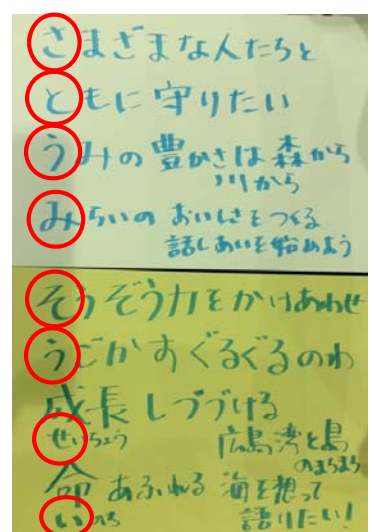 さまざまな人たちと
ともに守りたい
うみの豊かさは森から
川から
みらいのおいしさをつくる
話しあいを始めよう
そうぞう力をかけあわせ
うごかすぐるぐるのわ
成長しつづける
せいちょう 広島湾と島
のまちまち
命あふれる海を想って
いのち 語りたい!